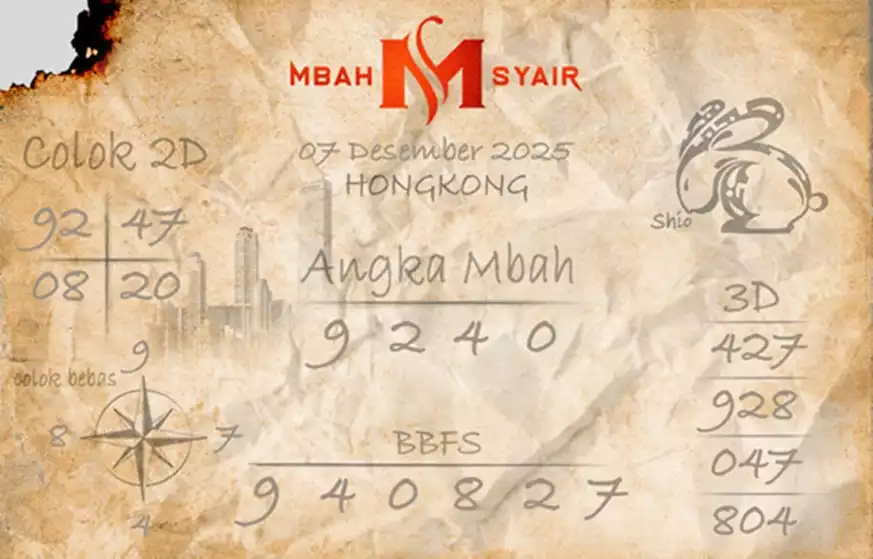 MBAH M SYAIR
Colok 2D
07 Desember 2025
HONGKONG
Shio
92 47
08 20
Angka Mbah
9 2 4 0
3D
427
928
047
804
colok bebas
9
8 7
4
BBFS
9 4 0 8 2 7